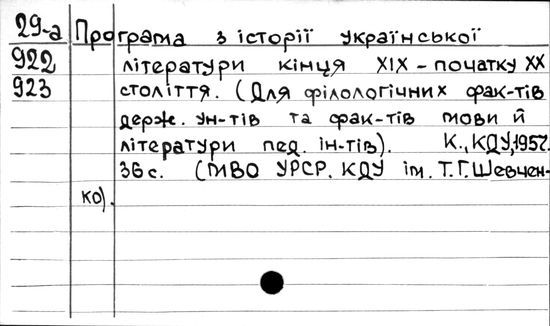 29-а Програма з історії української
922 літератури кінця XIX – початку XX
923 століття. (Для філологічних фак-тів
держ. ун-тів та фак-тів мови й
літератури пед. ін-тів). К., КДУ, 1957.
36 с. (МВО УРСР. КДУ ім. Т.Г. Шевчен-
ко).